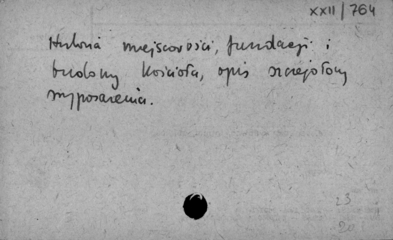 XXII/764
Historia miejscowości, fundacji i
budowy kościoła, opis szczegółowy
wyposażenia.
23
20